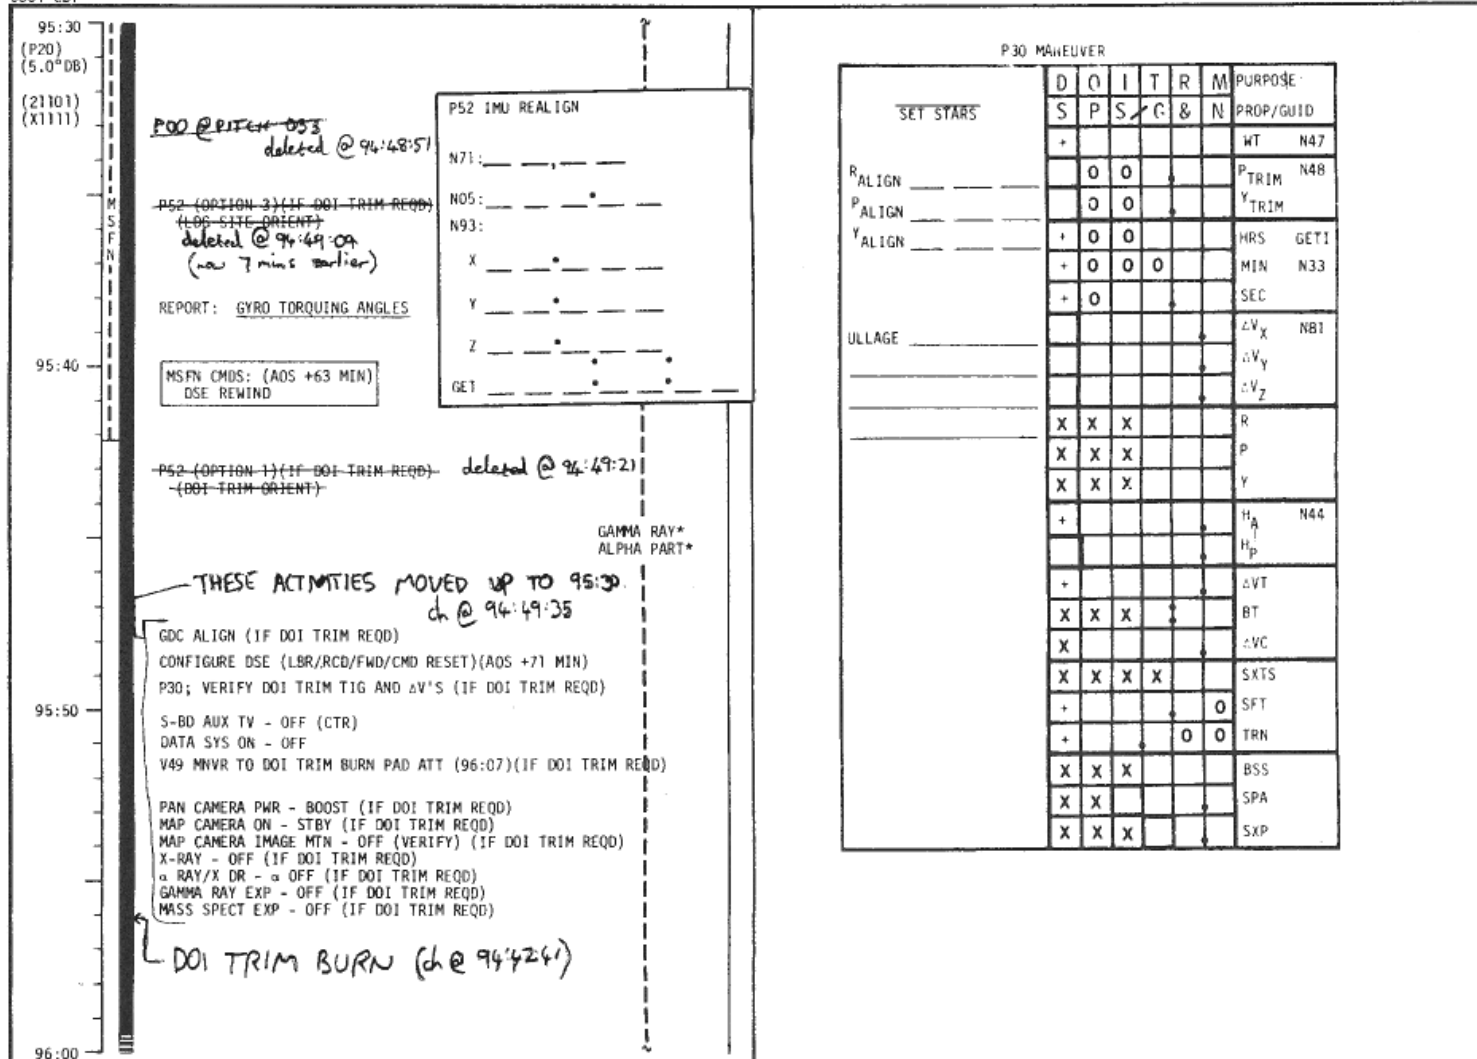 95:30
(P20)
(5.0°DB)
(21101)
(X1111)
M
S
F
N
95:40
95:50
96:00
P00 @ PITCH 033
deleted @ 94:48:51
P52 (OPTION 3)(IF DOI TRIM REQD)
(LDG SITE ORIENT)
deleted @ 94:49:09
(now 7 mins earlier)
REPORT: GYRO TORQUING ANGLES
MSFN CMDS: (AOS +63 MIN)
DSE REWIND
P52 IMU REALIGN
N71: __ __ , __ __
N05: __ __ __ . __ __
N93:
X __ __ . __ __ __
Y __ __ . __ __ __
Z __ __ . __ __ __
GET __ __ __ : __ __ : __ __ __
P52 (OPTION 1)(IF DOI TRIM REQD) deleted @ 94:49:21
(DOI TRIM ORIENT)
GAMMA RAY*
ALPHA PART*
THESE ACTIVITIES MOVED UP TO 95:30
ch @ 94:49:35
GDC ALIGN (IF DOI TRIM REQD)
CONFIGURE DSE (LBR/RCD/FWD/CMD RESET)(AOS +71 MIN)
P30; VERIFY DOI TRIM TIG AND ΔV'S (IF DOI TRIM REQD)
S-BD AUX TV - OFF (CTR)
DATA SYS ON - OFF
V49 MNVR TO DOI TRIM BURN PAD ATT (96:07)(IF DOI TRIM REQD)
PAN CAMERA PWR - BOOST (IF DOI TRIM REQD)
MAP CAMERA ON - STBY (IF DOI TRIM REQD)
MAP CAMERA IMAGE MTN - OFF (VERIFY) (IF DOI TRIM REQD)
X-RAY - OFF (IF DOI TRIM REQD)
α RAY/X DR - α OFF (IF DOI TRIM REQD)
GAMMA RAY EXP - OFF (IF DOI TRIM REQD)
MASS SPECT EXP - OFF (IF DOI TRIM REQD)
DOI TRIM BURN (ch @ 94:42:41)
P30 MANEUVER
SET STARS
R ALIGN __ __ __
P ALIGN __ __ __
Y ALIGN __ __ __
ULLAGE
D O I T R M PURPOSE
S P S / G & N PROP/GUID
+ WT N47
O O P TRIM N48
O O Y TRIM
+ O O HRS GETI
+ O O O MIN N33
+ O SEC
ΔVX N81
ΔVY
ΔVZ
X X X R
X X X P
X X X Y
+ HA N44
HP
+ ΔVT
X X X BT
X ΔVC
X X X X SXTS
+ O SFT
+ O O TRN
X X X BSS
X X SPA
X X X SXP